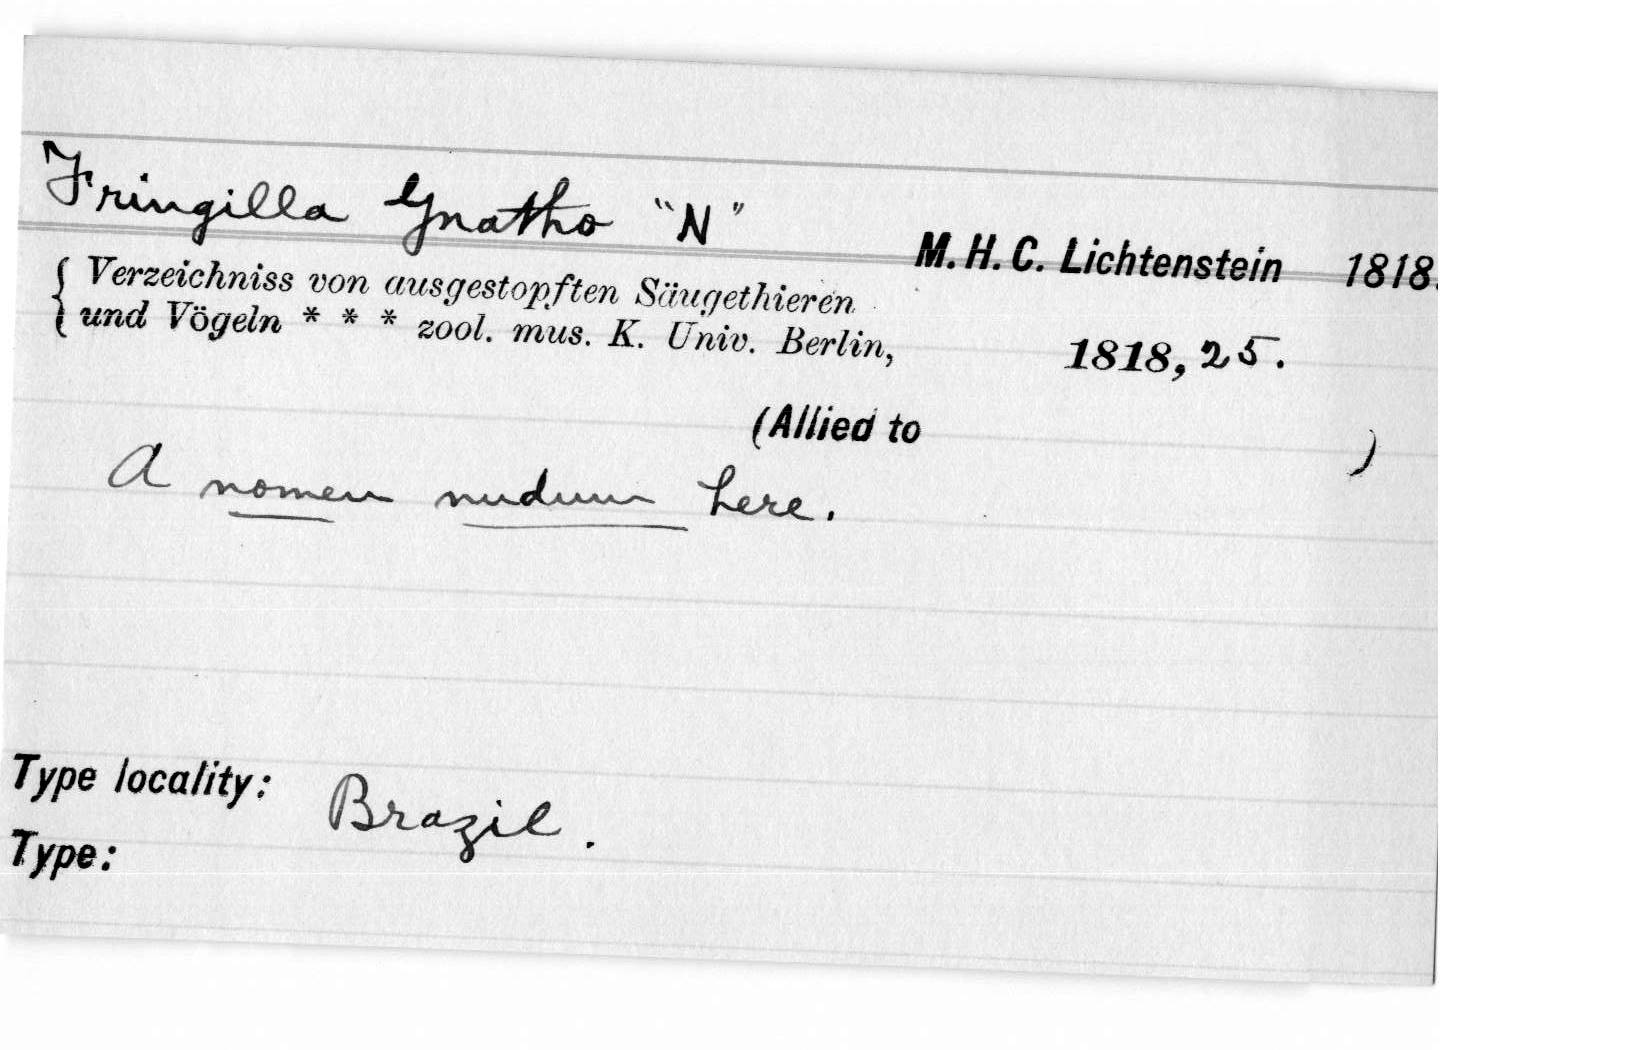 Fringilla Gnatho "N"
M. H. C. Lichtenstein 1818.
{ Verzeichniss von ausgestopften Säugethieren
{ und Vögeln * * * zool. mus. K. Univ. Berlin, 1818, 25.
(Allied to )
A nomen nudum here.
Type locality: Brazil.
Type: